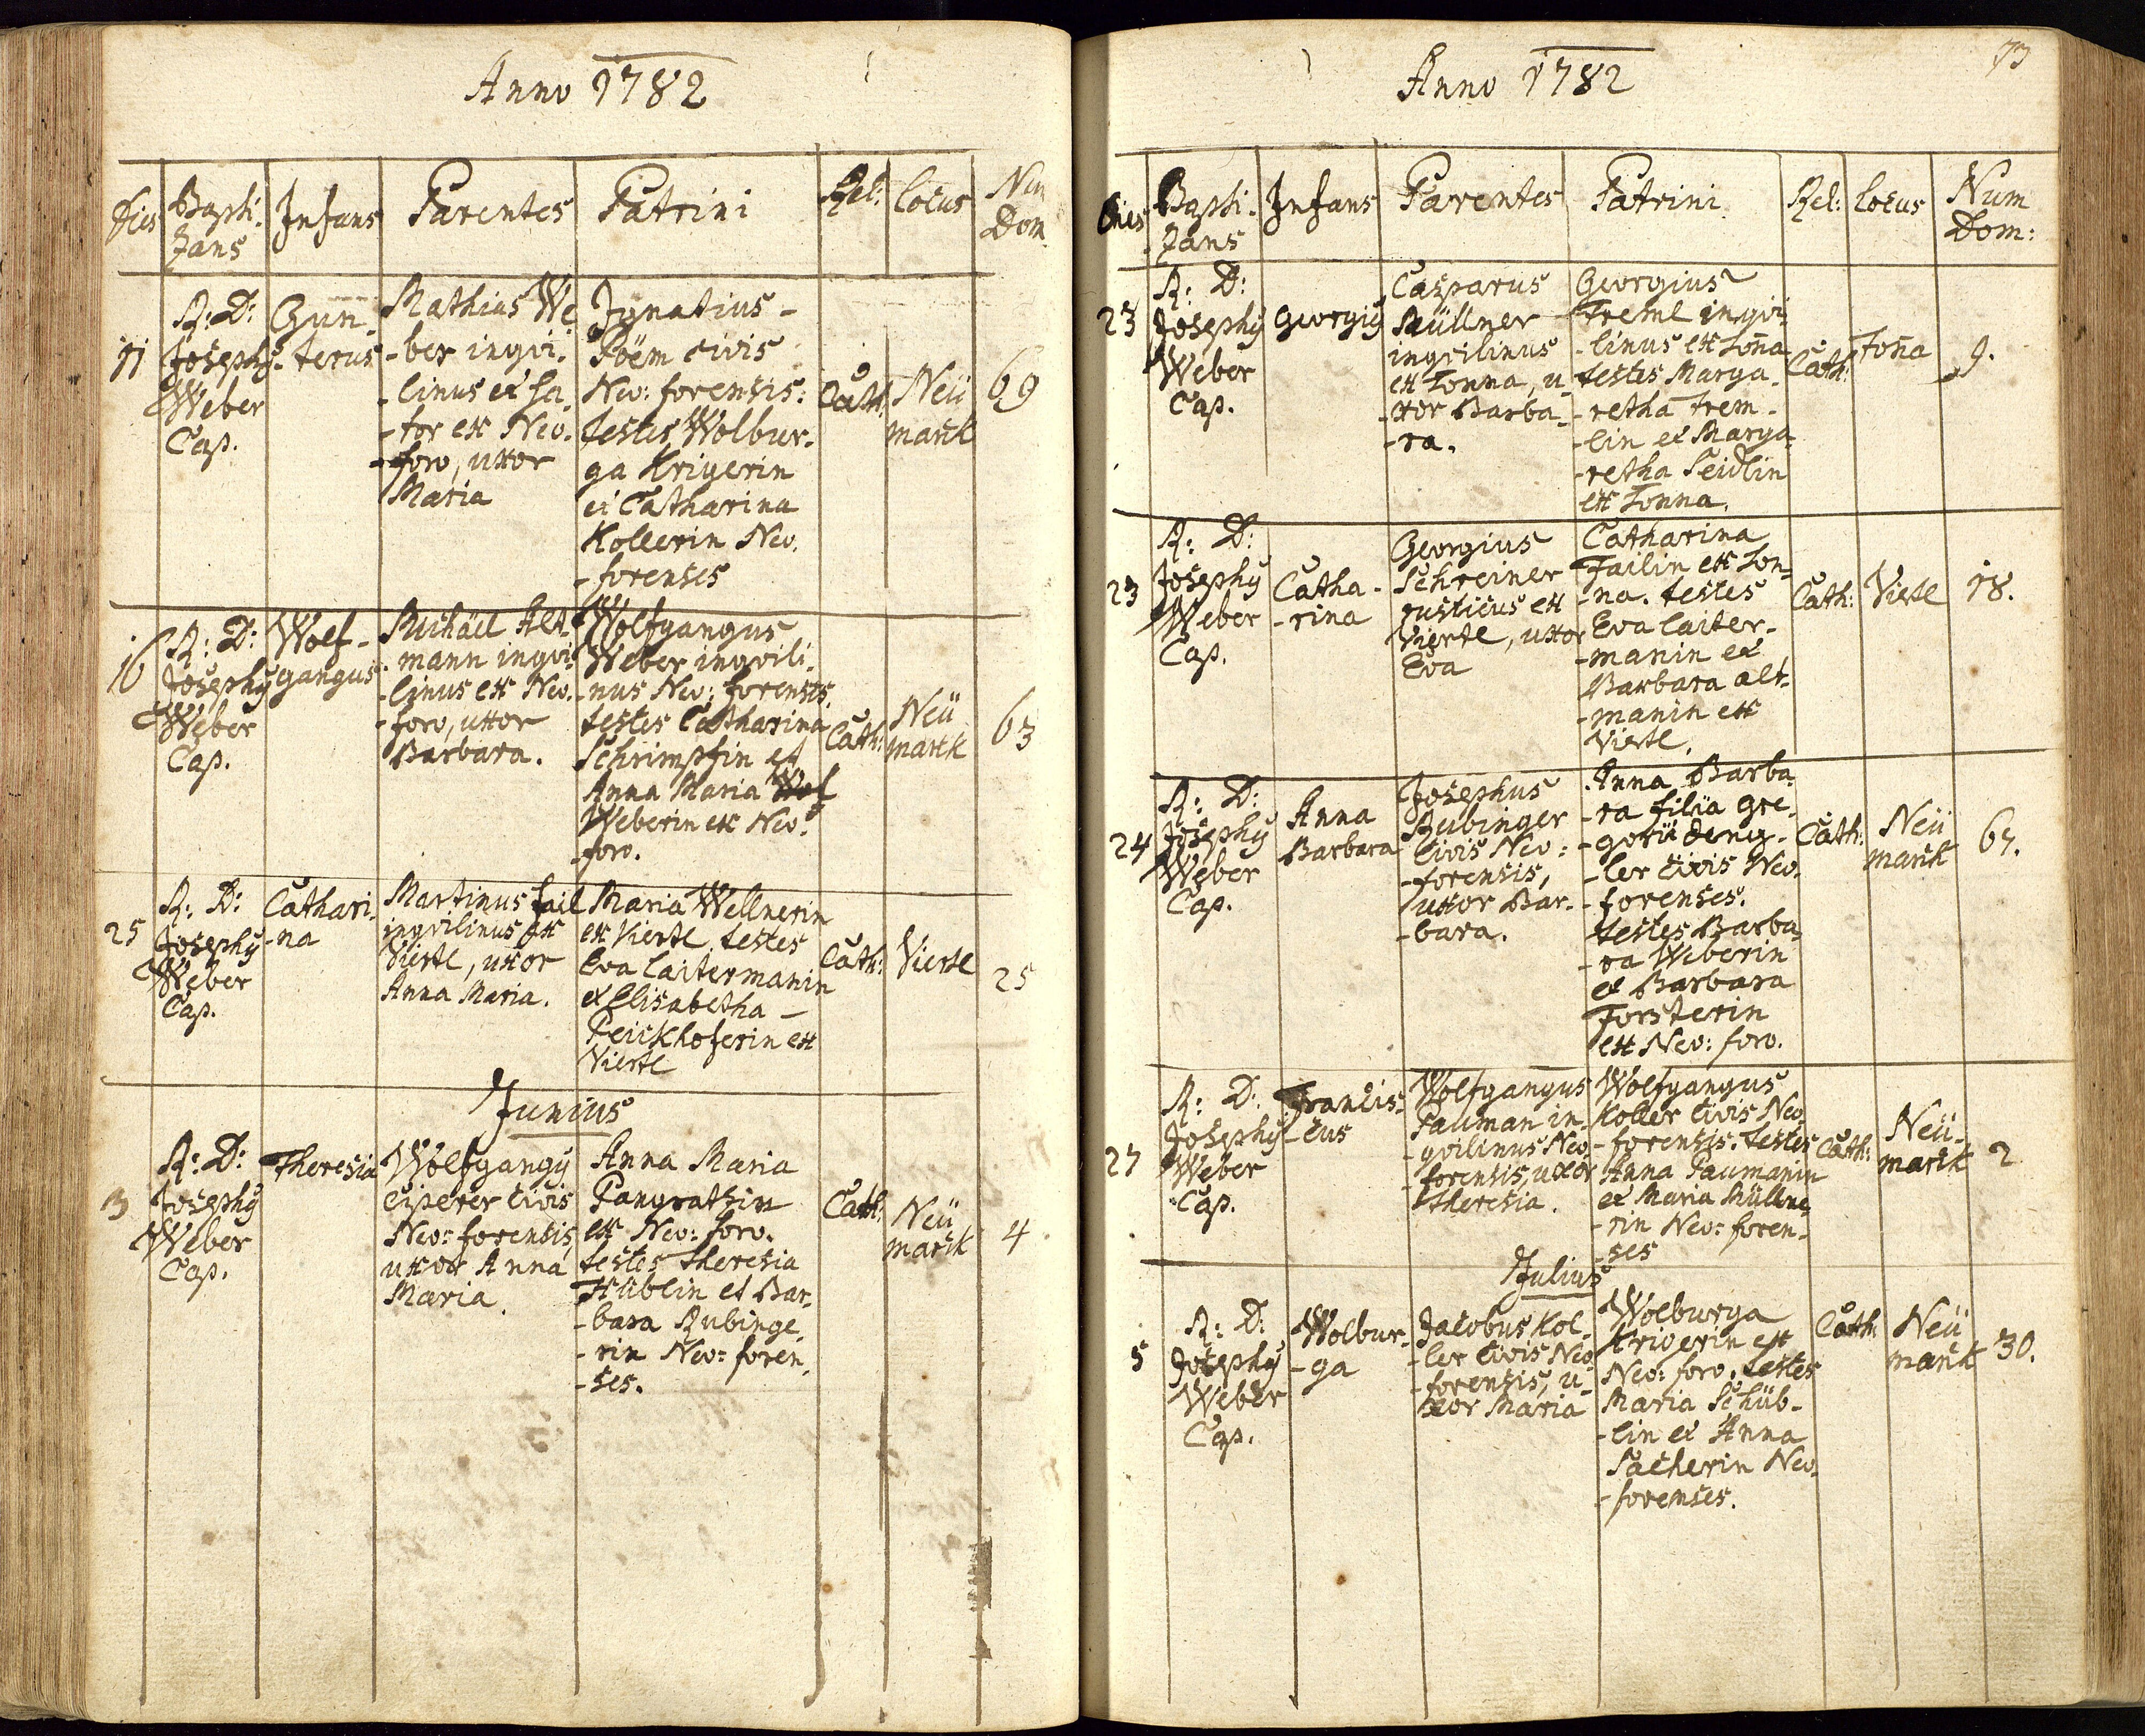 Anno 1782
Dies
Bapti-
zans
Infans
Parentes
Patrini
Rel:
locus
Num
Dom
11
R: D:
Josephy
Weber
Cap.
Gun̄-
-terus
Mathias We
-ber inqvi-
-linus et
-tor ex Neo-
-foro, uxor
Maria
Ignatius
Pöëm civis
Neo: forensis:
testes Wolbur-
ga Krigerin
et Catharina
Kollerin Neo-
-forenses
Cath:
Neü
marck
69
16
R: D:
Josephy
Weber
Cap.
Wolf-
gangus
Michäel Alt-
-mann inqvi-
-linus ex Neo-
-foro, uxor
Barbara.
Wolfgangus
Weber inqvili-
-nus Neo: forensis.
testes Catharina
Schrimpfin et
Anna Maria
Weberin ex Neo-
-foro.
Cath:
Neü
marck
63
25
R: D:
Josephy
Weber
Cap.
Cathari-
-na
Martinus Fail
inqvilinus ex
Viertl, uxor
Anna Maria.
Maria Wellnerin
ex Viertl, testes
Eva laitermanin
et Elisabetha -
Peickhoferin ex
Viertl
Cath:
Viertl
25
Junius
3
R: D:
Josephy
Weber
Cap.
Theresia
Wolfgangy
Eiperer civis
Neo=forensis,
uxor Anna
Maria.
Anna Maria
Pangratzin
ex Neo: foro.
testes Theresia
Hüblin et Bar-
-bara Rubinge-
-rin Neo=foren-
-ses.
Cath:
Neü
marck
4
73
Anno 1782
Dies
Bapti-
zans
Infans
Parentes
Patrini
Rel:
locus
Num
Dom:
23
R: D:
Josephy
Weber
Cap.
Georgiy
Casparus
Müllner
inqvilinus
ex Tonna, u-
-xor Barba-
-ra.
Georgius
Treml inqvi-
-linus ex Ton̄a
testes Marga-
-retha Trem-
-lin et Marga-
-retha Seidlin
ex Tonna.
Cath:
Ton̄a
9.
23
R: D:
Josephy
Weber
Cap.
Catha-
-rina
Georgius
Schreiner
rusticus ex
Viertl, uxor
Eva
Catharina
Failin ex Ton-
-na. testes
Eva laiter-
-manin et
Barbara alt-
-manin ex
Viertl.
Cath:
Viertl
18.
24
R: D:
Josephy
Weber
Cap.
Anna
Barbara
Josephus
Rubinger
civis Neo:
-forensis,
uxor Bar-
-bara.
Anna Barba-
-ra filia Gre-
-gorii deng-
-ler civis Neo-
-forenses.
testes Barba-
-ra Weberin
et Barbara
Forsterin
ex Neo: foro.
Cath:
Neü
marck
67.
27
R: D:
Josephy
Weber
Cap.
Francis-
-cus
Wolfgangus
Pauman in-
-qvilinus Neo-
-forensis, uxor
Theresia.
Wolfgangus
Koller civis Neo-
-forensis. testes
Anna Paumanin
et Maria Müllne-
-rin Neo: foren-
-ses
Cath:
Neü-
marck
2
Julius
5
R: D:
Josephy
Weber
Cap.
Wolbur-
-ga
Jacobus Kol-
-ler civis Neo-
-forensis, u-
xor Maria
Wolburga
Krigerin ex
Neo: foro. testes
Maria Schüb-
-lin et Anna
Pacherin Neo-
-forenses.
Cath:
Neü
marck
30.